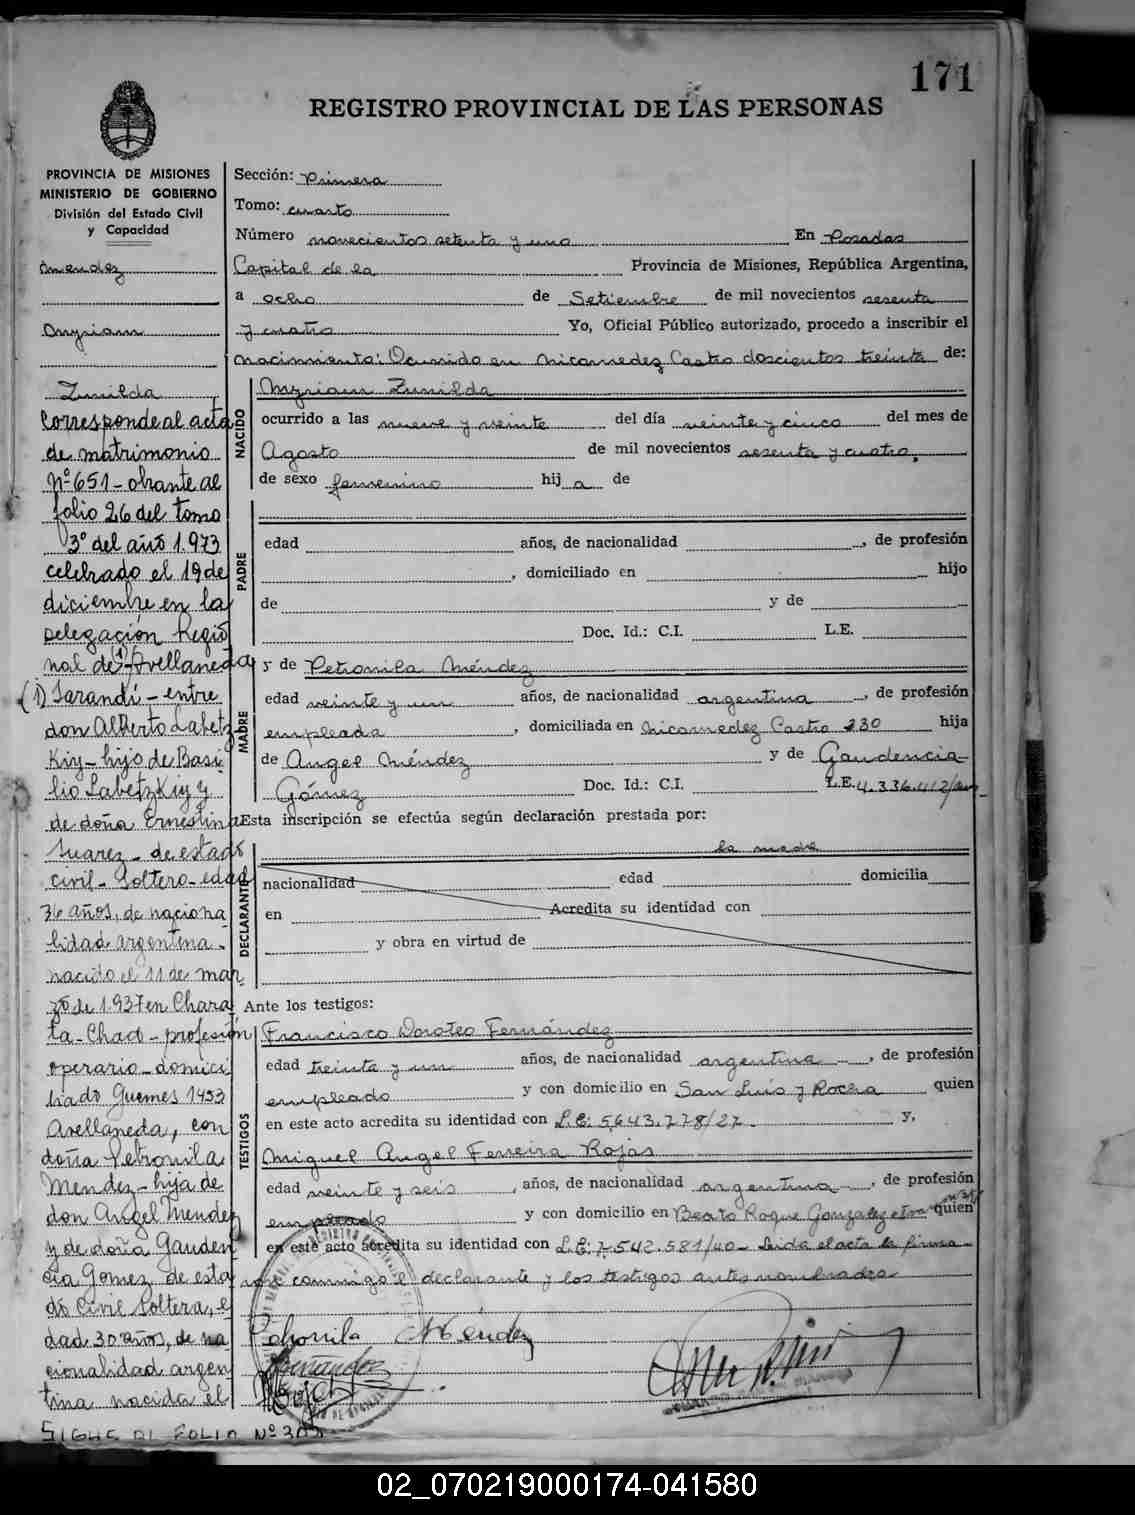 171
REGISTRO PROVINCIAL DE LAS PERSONAS
PROVINCIA DE MISIONES
MINISTERIO DE GOBIERNO
División del Estado Civil
y Capacidad
Mendez
Myriam
Zunilda
Corresponde al acta
de matrimonio
Nº 651 - obrante al
folio 26 del tomo
3º del año 1.973
celebrado el 19 de
diciembre en la
Delegación Regio
nal de (1) Avellaneda
(1) Sarandí - entre
don Alberto Labetz
Kiy - hijo de Basi
lio Labetzkiy y
de doña Ernestina
Suarez - de estado
civil - Soltero - edad
36 años, de naciona
lidad argentina -
nacido el 11 de mar
zo de 1.937 en Chara
ta - Chaco - profesión
operario - domici
liado Guemes 1453
Avellaneda, con
doña Petronila
Mendez - hija de
don Angel Mendez
y de doña Gauden
cia Gomez de esta
do Civil Soltera, e
dad 30 años, de na
cionalidad argen
tina nacida el
SIGUE AL FOLIO Nº
Sección: Primera
Tomo: cuarto
Número novecientos setenta y uno En Posadas
Capital de la Provincia de Misiones, República Argentina,
a ocho de Setiembre de mil novecientos sesenta
y cuatro Yo, Oficial Público autorizado, procedo a inscribir el
nacimiento: Ocurrido en Nicomedez Castro doscientos treinta de:
NACIDO
Myriam Zunilda
ocurrido a las nueve y veinte del día veinte y cinco del mes de
Agosto de mil novecientos sesenta y cuatro,
de sexo femenino hij a de
PADRE
edad años, de nacionalidad , de profesión
, domiciliado en hijo
de y de
Doc. Id.: C.I. L.E.
MADRE
y de Petronila Méndez
edad veinte y un años, de nacionalidad argentina , de profesión
empleada , domiciliada en Nicomedez Castro 230 hija
de Angel Méndez y de Gaudencia
Gómez Doc. Id.: C.I. L.E. 4.336.412
Esta inscripción se efectúa según declaración prestada por:
DECLARANTE
la madre
nacionalidad edad domicilia
en Acredita su identidad con
y obra en virtud de
Ante los testigos:
TESTIGOS
Francisco Doroteo Fernández
edad treinta y un años, de nacionalidad argentina , de profesión
empleado y con domicilio en San Luis y Rocha quien
en este acto acredita su identidad con L.E: 5.643.778/27 y,
Miguel Angel Ferreira Rojas
edad veinte y seis , años, de nacionalidad argentina , de profesión
empleado y con domicilio en Beato Roque Gonzalez quien
en este acto acredita su identidad con L.E: 7.542.581/40 - Leida el acta la firma
conmigo el declarante y los testigos antes nombrados
Petronila Méndez
Fernández
02_070219000174-041580